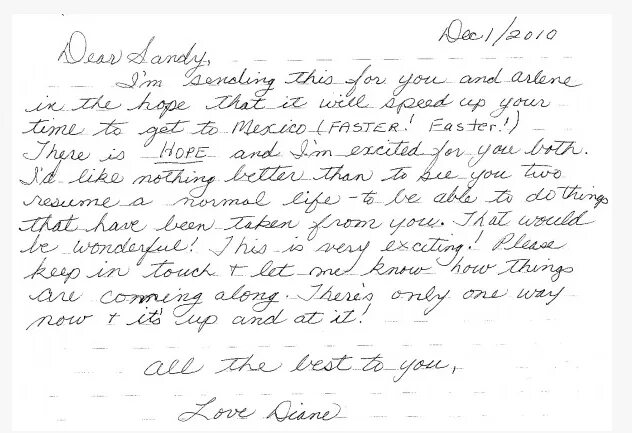 Dec 1/2010
Dear Sandy,
I'm sending this for you and arlene
in the hope that it will speed up your
time to get to Mexico (FASTER! Faster!)
There is HOPE and I'm excited for you both.
I'd like nothing better than to see you two
resume a normal life - to be able to do things
that have been taken from you. That would
be wonderful! This is very exciting! Please
keep in touch + let me know how things
are comming along. There's only one way
now + it's up and at it!
all the best to you,
Love Diane